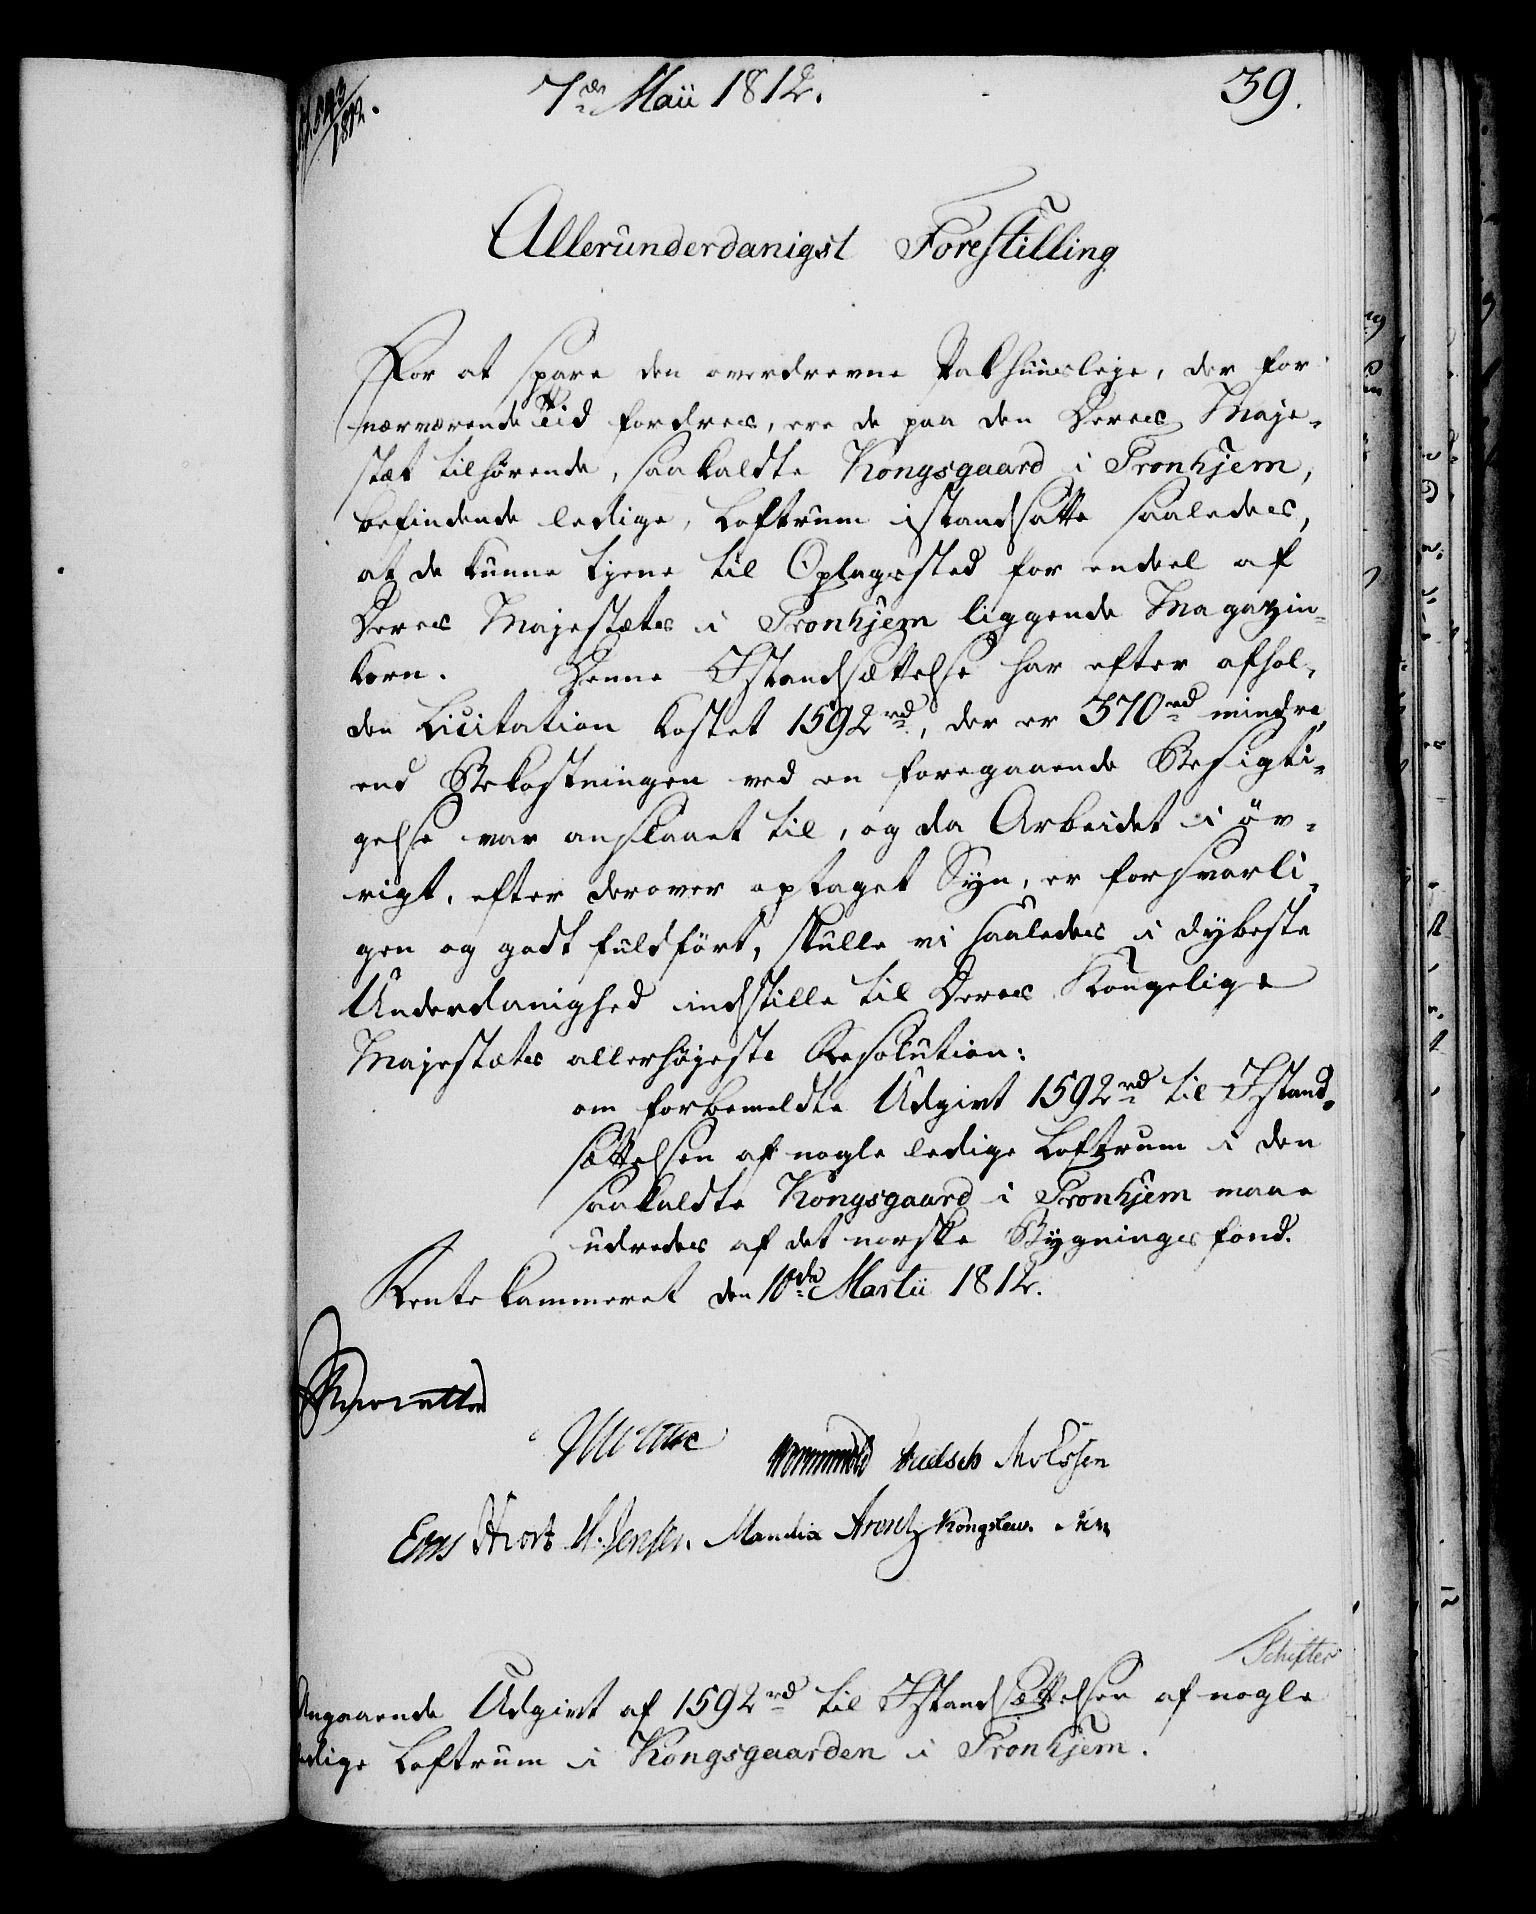 7de Maii 1812.
39.
1812.
Allerunderdanigst Forestilling
For at spare den overdrevne Pakhuusleje, der for
nærværende Tiid fordres, ere de paa den Deres Maje-
stæt tilhørende, saakaldte Kongsgaard i Tronhjem,
befindende ledige, Loftrum istandsatte saaledes,
at de kunne tjene til Oplagssted for endeel af
Deres Majestæts i Tronhjem liggende Magazin-
korn. Denne Istandsættelse har efter afhol-
den Licitation kostet 1592 rd, der er 370 rd mindre,
end Bekostningen ved en foregaaende Besigti-
gelse var anslaaet til, og da Arbeidet i øv-
rigt, efter derover optaget Syn, er forsvarli-
gen og godt fuldført, skulle vi saaledes i dybeste
Underdanighed indstille til Deres Kongelige
Majestæts allerhøjeste Resolution:
om forbemeldte Udgivt 1592 rd til Istand-
sættelsen af nogle ledige Loftrum i den
saakaldte Kongsgaard i Tronhjem maae
udredes af det norske Bygningsfond.
Rentekammeret den 10de Martii 1812.
Moltke Wormskiold Knudsen
Hiort M. Jensen. Manthey Arentz Kongslew.
Schifter
Angaaende Udgivt af 1592 rd til Istandsættelsen af nogle
ledige Loftrum i Kongsgaarden i Tronhjem.